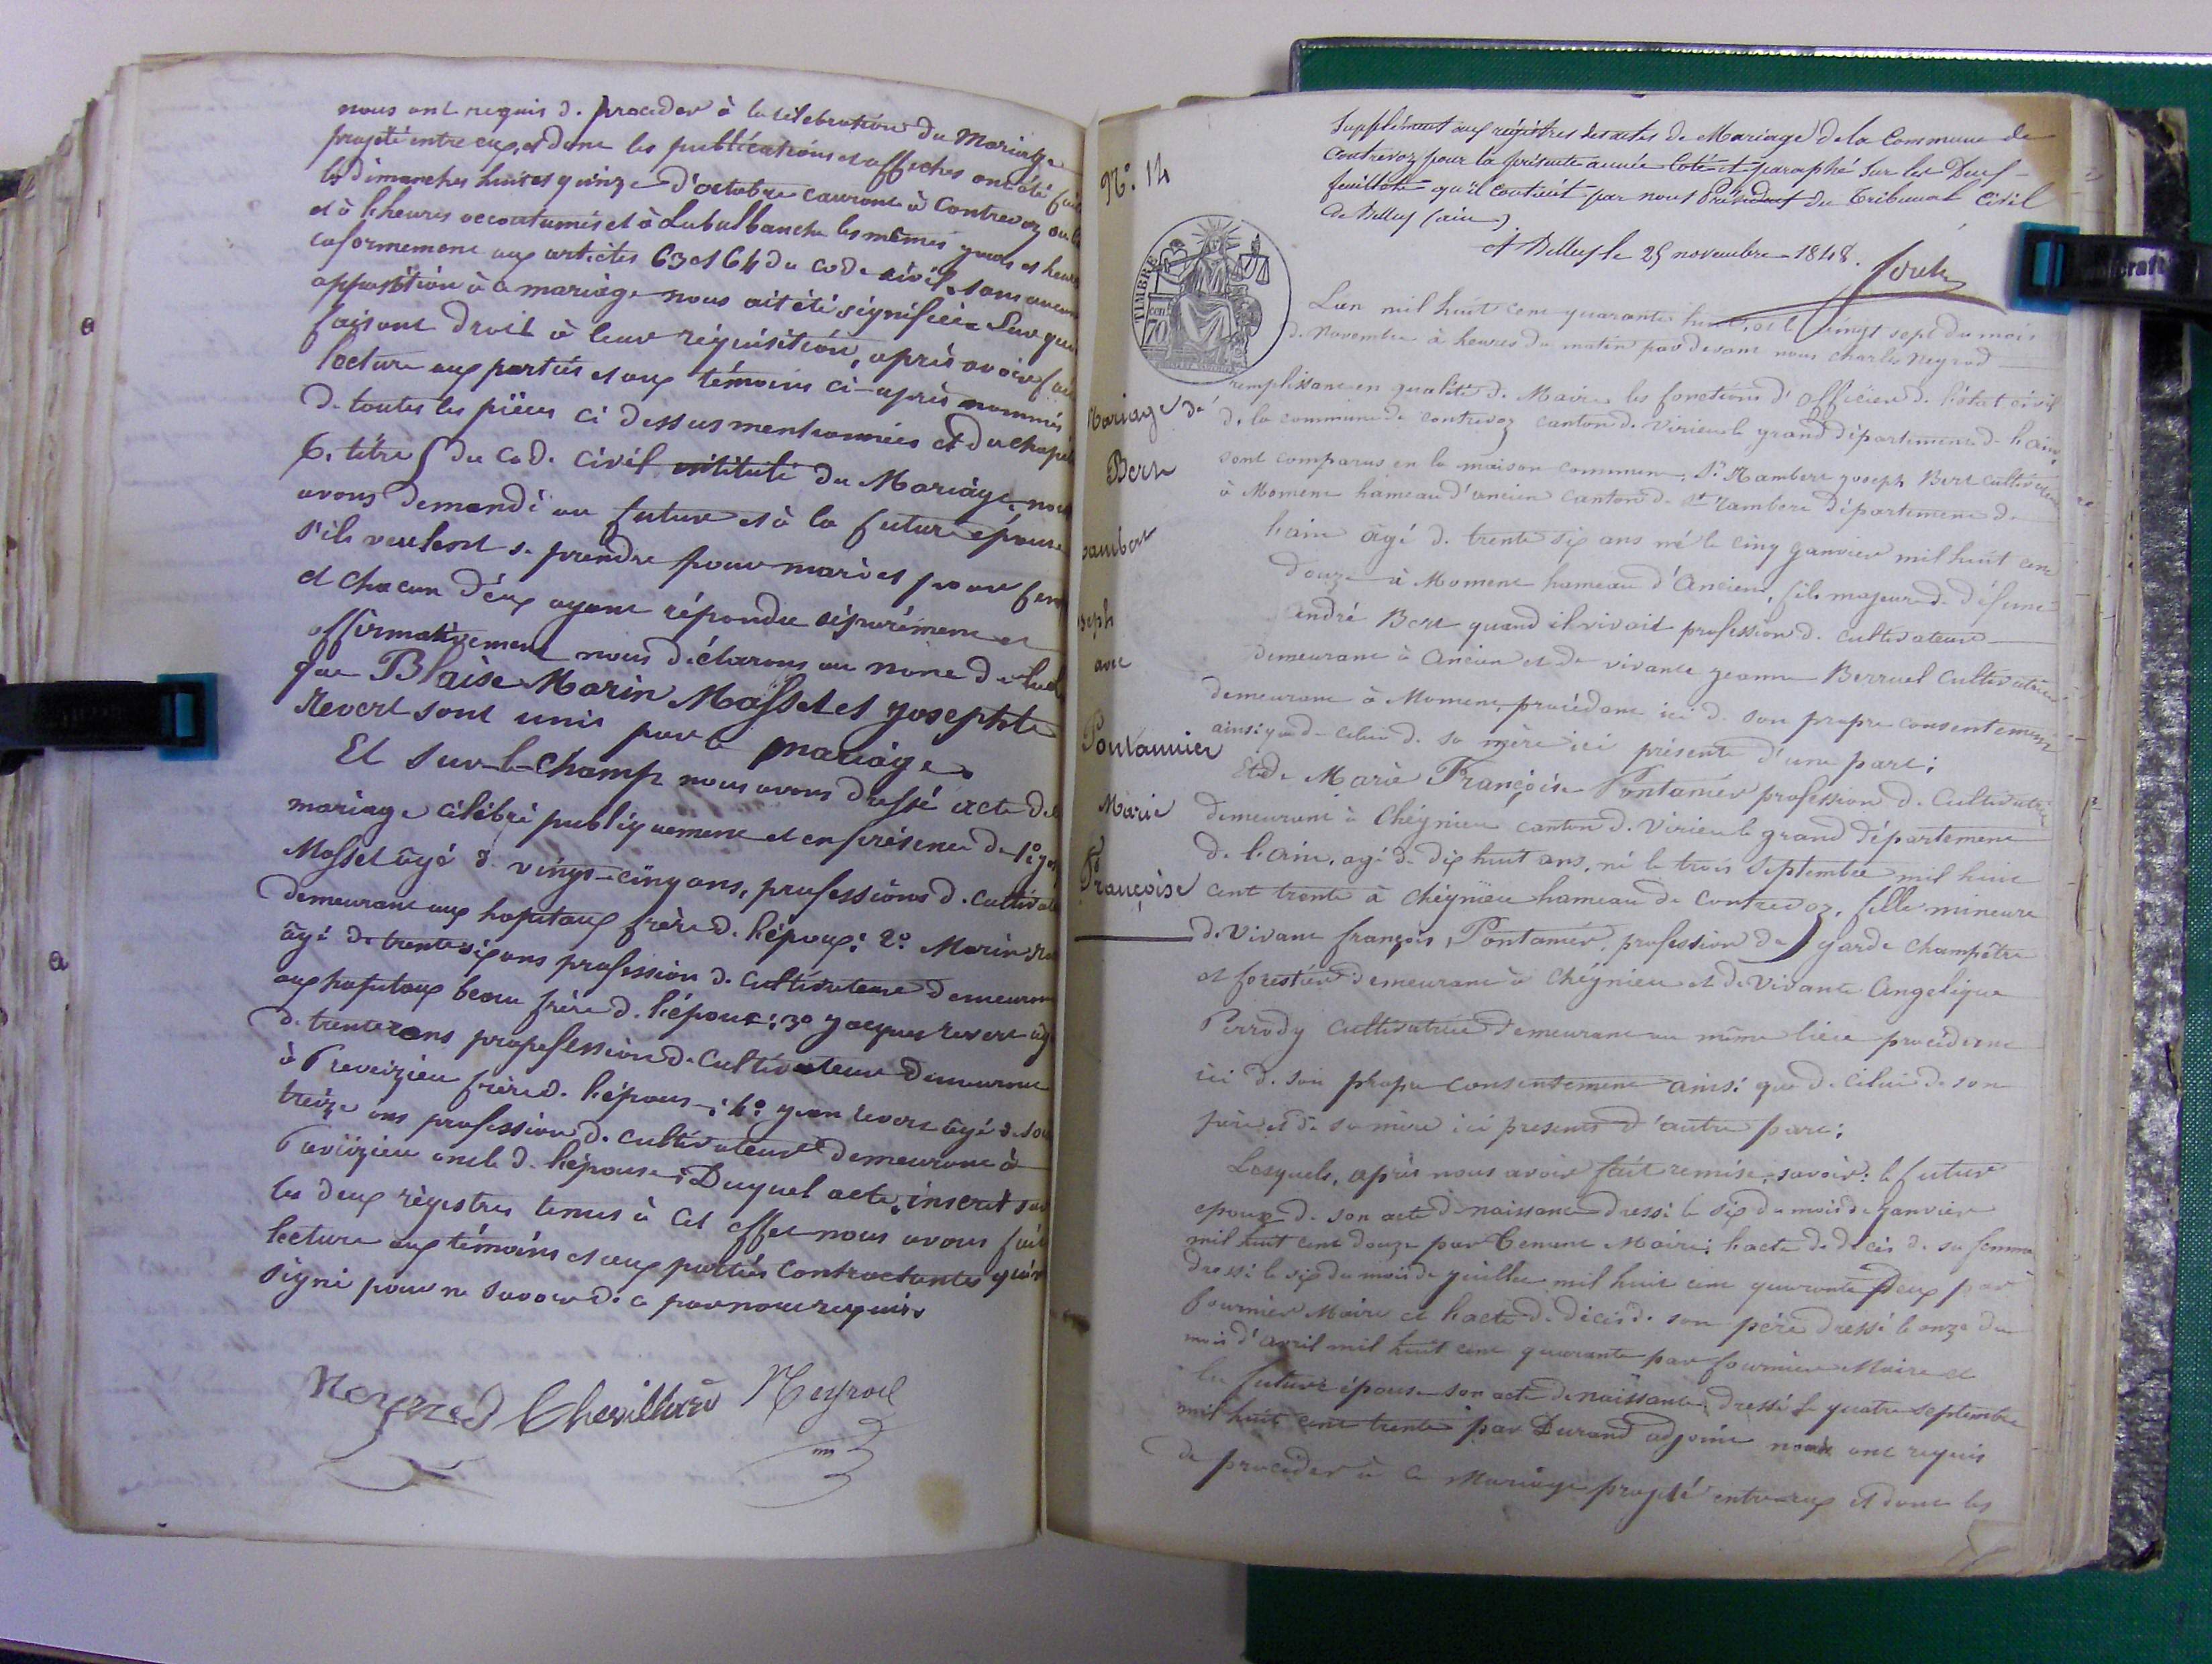 nous ont requis de proceder à la célébration du Mariage
projeté entre eux, et dont les publications et affiches ont été
les dimanches huit et quinze d'octobre courant à Contrevoz
et à l'heures accoutumés et à Labalbanche les mêmes jours et heures
coformement aux articles 63 et 64 du code civil, sans
opposition à ce mariage nous ait été signifiée.
faisant droit à leur réquisition, après avoir
lecture aux parties et aux témoins ci-après nommés
de toutes les pièces ci dessus mentionnées et du
6. titre 5 du code civil intitulé du Mariage,
avons demandé au future et à la future épouse
s'ils veulent se prendre pour mari et pour
et chacun d'eux ayant répondu séparément et
affirmativement nous déclarons au nom de
que Blaise Marin Masset et Josephte
Revert sont unis par le mariage.
Et sur-le-champ nous avons dressé acte de
mariage célébré publiquement et en présence de 1º
Masset âgé de vingt-cinq ans, professions de
demeurant aux hopitaux frère de l'époux: 2º Marin
âgé de trente six ans profession de cultivateur demeurant
aux hopitaux beau frère de l'époux: 3º Jacques revert
de trente ans profession de cultivateur demeurant
à Preveizieu frère de l'épouse: 4º Jean revert âgé de
treize ans profession de cultivateur demeurant à
oncle de l'épouse; Duquel acte, inscrit sur
les deux régistres tenus à cet effet nous avons fait
lecture aux témoins et aux parties contractantes
signé pour ne savoir de ce par nous requis
Neyrod Chevillard Neyrod
Nº. 14
Supplément aux régistres des actes de Mariage de la Commune de
Contrevoz pour la présente année Coté et paraphé sur les Deux
feuillets qu'il contient par nous Président du tribunal Civil
de Belley (ain)
A Belley le 25 novembre 1848.
TIMBRE
70
Mariage de
Bert
Rambert
Joseph
avec
Pontannier
Marie
Françoise
L'an mil huit cent quarante huit, et le vingt sept du mois
de Novembre à heures du matin par devant nous charles Neyrod
remplissant en qualité de Maire les fonctions d'officier de l'état civil
de la commune de contrevoz canton de Virieu le grand département de l'ain,
sont comparus en la maison commune, Sr. Rambert Joseph Bert cultivateur
à Moment hameau d'ancien canton de St Rambert département de
l'ain âgé de trente six ans né le cinq janvier mil huit cent
douze à Moment hameau d'Ancien, fils majeur de défunt
andré Bert quand il vivait profession de cultivateur
demeurant à Ancien et de vivante jeanne Berruel Cultivatrice
demeurant à Moment, procédant ici de son propre consentement
ainsi que de celui de sa mère ici présente d'une part;
Et de Marie Françoise Pontanier profession de Cultivatrice
demeurant à Chégnieu canton de Virieu le grand département
de l'ain, agé de dix huit ans, né le trois Septembre mil huit
cent trente à Chégnieu hameau de Contrevoz, fille mineure
de Vivant françois, Pontanier, profession de garde champêtre
et forestier demeurant à Chégnieu et de Vivante Angelique
Perrody cultivatrice demeurant au même lieu procédant
ici de son propre consentement ainsi que de celui de son
père et de sa mère ici presents d'autre part;
Lesquels, après nous avoir fait remise, savoir: le futur
epoux de son acte de naissance dressé le six du mois de janvier
mil huit cent douze par Maire; l'acte de décès de sa femme
dressé le six du mois de juillet mil huit cent quarante deux par
fournier Maire et l'acte de décés de son père dressé le onze du
mois d'avril mil huit cent quarante par fournier Maire et
la future épouse son acte de naissance dressé le quatre septembre
mil huit cent trente par Durand adjoint nous ont requis
de proceder à ce Mariage projeté entre eux et dont les